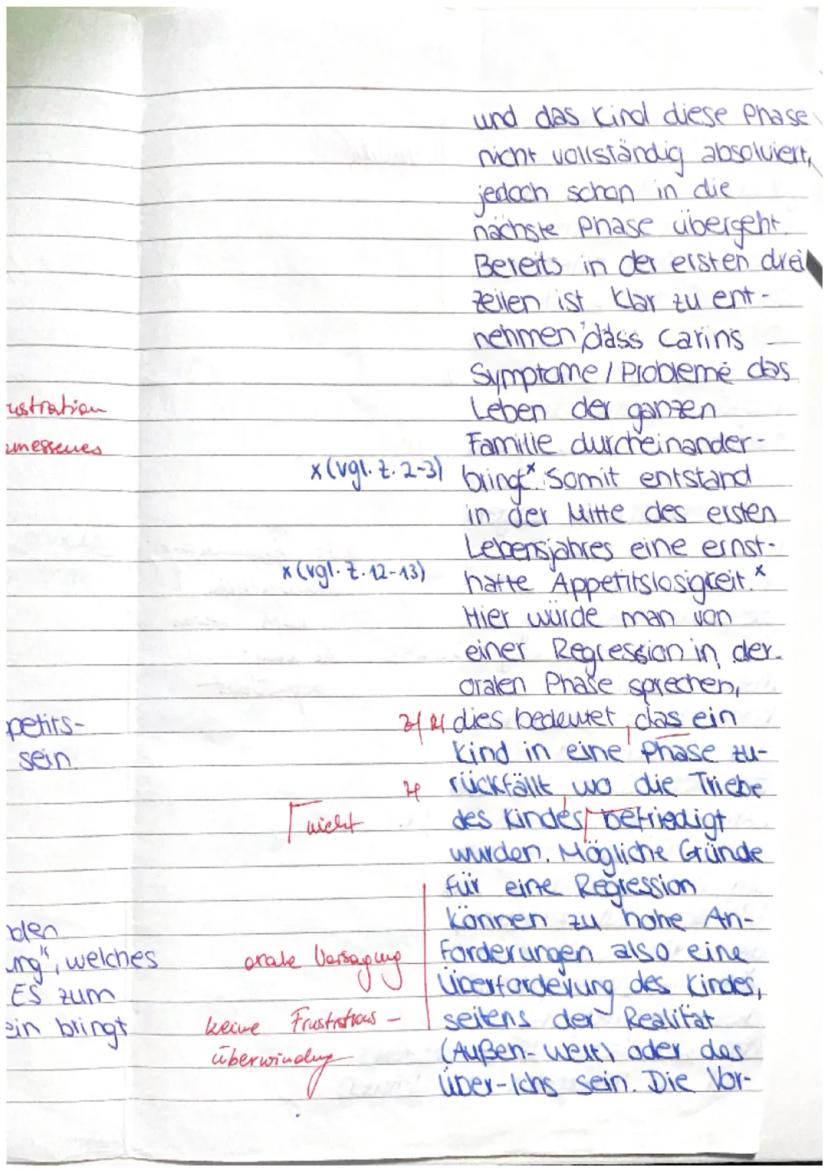 und das Kind diese Phase
nicht vollständig absolviert,
jedoch schon in die
nächste Phase übergeht.
Bereits in der ersten drei
Zeilen ist klar zu ent-
nehmen, dass Carins
Symptome / Probleme das
Leben der ganzen
Familie durcheinander-
x (vgl. Z. 2-3) bringt.x Somit entstand
in der Mitte des ersten
Lebensjahres eine ernst-
x (vgl. Z. 12-13) hafte Appetitslosigkeit.x
Hier würde man von
einer Regression in der
oralen Phase sprechen,
dies bedeutet, das ein
Kind in eine Phase zu-
rückfällt, wo die Triebe
nicht des Kindes befriedigt
wurden. Mögliche Gründe
für eine Regression
können zu hohe An-
orale Versagung forderungen also eine
Überforderung des Kindes,
keine Frustrations- seitens der Realität
überwindung (Außen-Welt) oder des
Über-Ichs sein. Die Vor-
ustration
messenes
petits-
sein.
den
ung", welches
ES zum
ein bringt